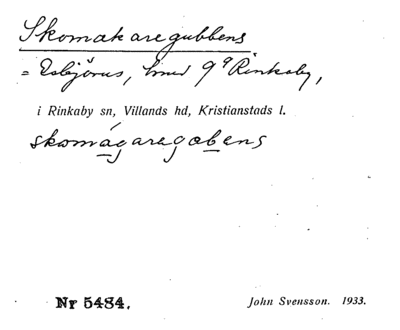 Skomakaregubbens
= Esbjörns, hmd 9ª Rinkaby,
i Rinkaby sn, Villands hd, Kristianstads l.
skomágaregobens
Nr 5484.
John Svensson. 1933.